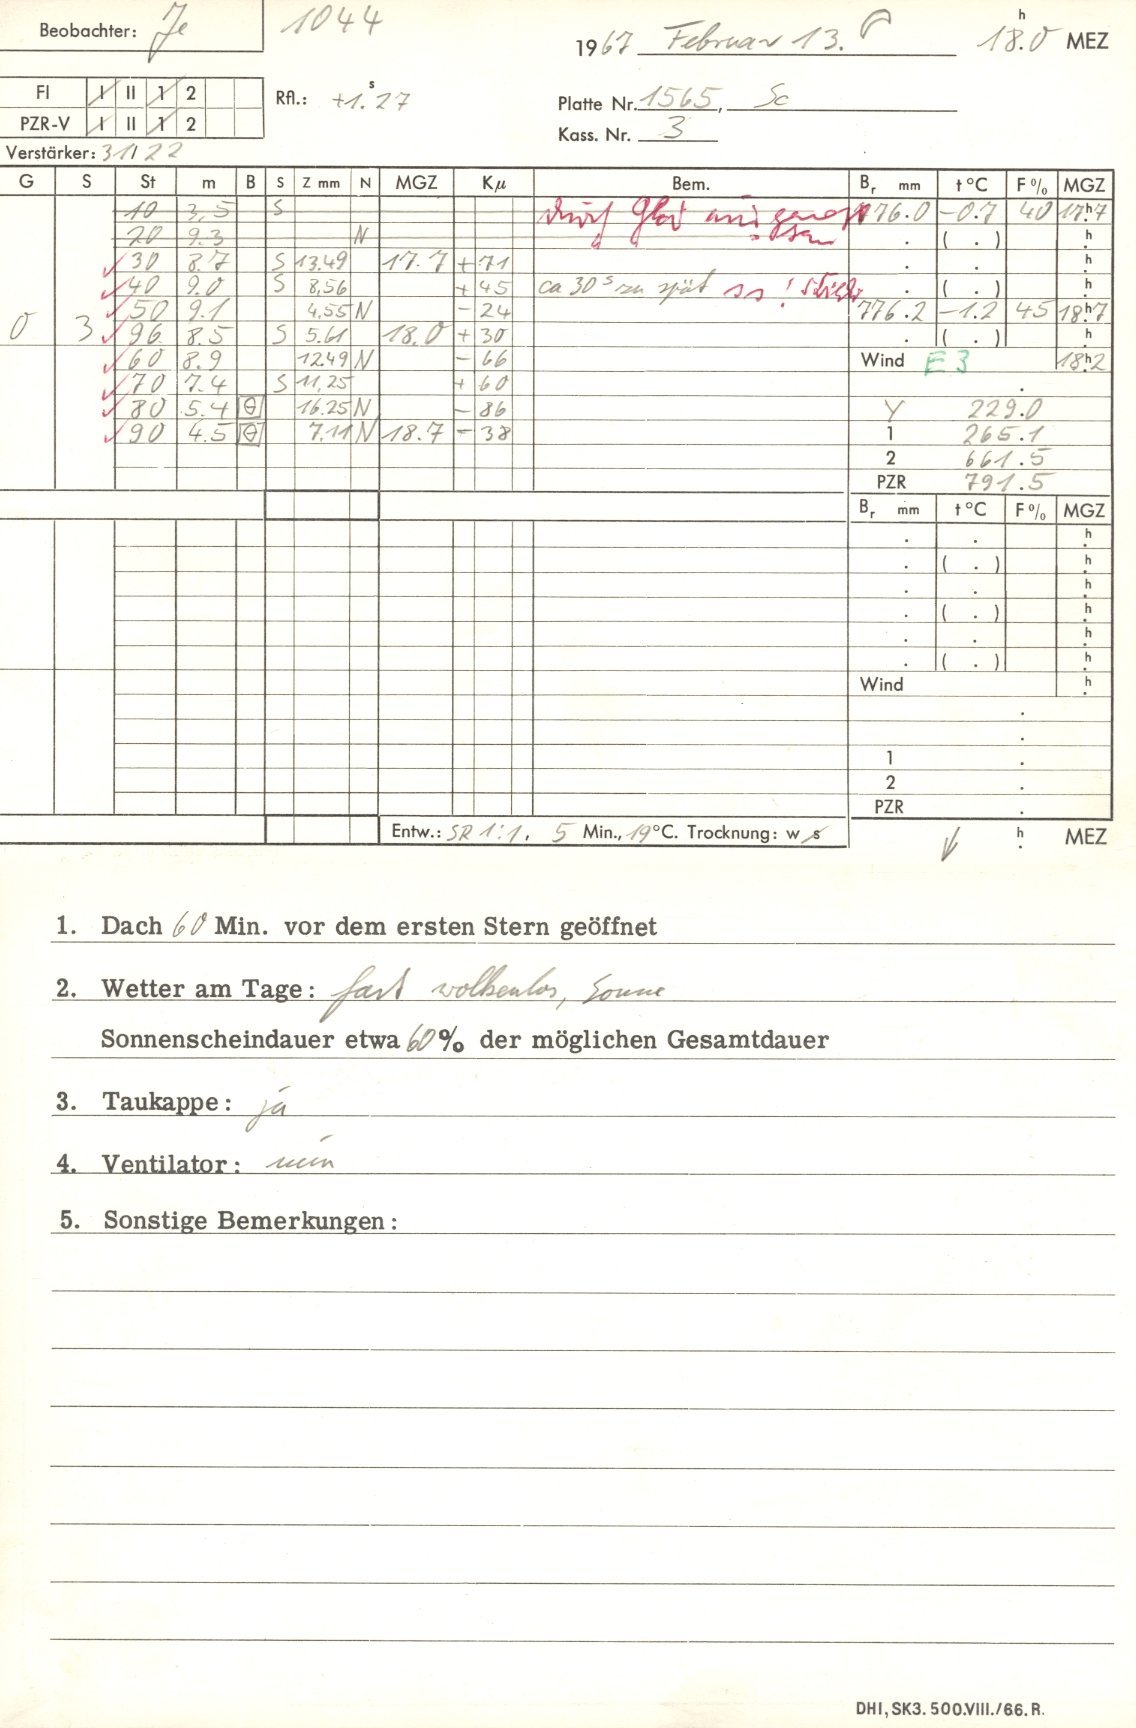 Beobachter: Je 1044
1967 Februar 13. 18.0 h MEZ
Fl I II 1 2 Rfl.: +1.s27
Platte Nr. 1565, Sc
PZR-V I II 1 2
Kass. Nr. 3
Verstärker: 31/22
G S St m B S Z mm N MGZ Kμ Bem. Br mm t °C F % MGZ
10 3,5 S 776.0 -0.7 40 17h7
20 9.3 N . ( . ) h
30 8.7 S 13.49 17.7 +71 . . h
40 9.0 S 8,56 +45 ca 30 s zu spät . ( . ) h
50 9.1 4.55 N -24 776.2 -1.2 45 18h7
0 3 96 8.5 S 5.61 18.0 +30 . ( . ) h
60 8.9 12.49 N -66 Wind E 3 18h2
70 7.4 S 11,25 +60 .
80 5.4 θ 16.25 N -86 Y 229.0
90 4.5 θ 7.11 N 18.7 -38 1 265.1
2 661.5
PZR 791.5
Br mm t °C F % MGZ
. . h
. ( . ) h
. . h
. ( . ) h
. . h
. ( . ) h
Wind h
.
.
1 .
2 .
PZR .
Entw.: SR 1:1, 5 Min., 19 °C. Trocknung: w s
h MEZ
1. Dach 60 Min. vor dem ersten Stern geöffnet
2. Wetter am Tage: fast wolkenlos, Sonne
Sonnenscheindauer etwa 60 % der möglichen Gesamtdauer
3. Taukappe: ja
4. Ventilator: nein
5. Sonstige Bemerkungen:
DHI, SK3. 500.VIII./66. R.